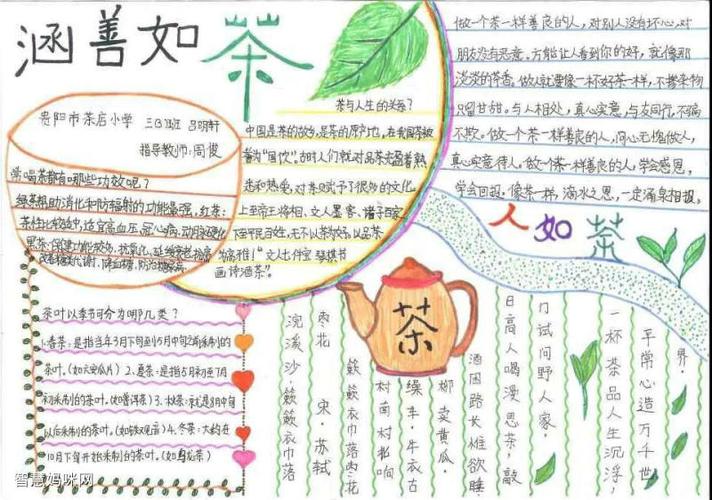 涵善如茶
贵阳市茶店小学 三(3)班 吕明轩
指导教师:周俊
常喝茶都有哪些功效呢?
绿茶帮助消化和防辐射的功能最强,红茶:
茶性比较适中,适宜高血压,冠心病,动脉硬化
茶与人生的关系?
中国是茶的故乡,是茶的原产地,在我国茶被
誉为“国饮”,古时人们就对品茶充盈着熟
悉和热爱,对茶赋予了很多的文化,
上至帝王将相、文人墨客、诸子百家
下至平民百姓,无不以茶为好,以品茶
为高雅!“文人七件宝 琴棋书
画诗酒茶”。
做一个茶一样善良的人,对别人没有坏心,对
朋友没有恶意。方能让人看到你的好,就像那
淡淡的茶香。做人就要像一杯好茶一样,不掺杂物
只留甘甜。与人相处,真心实意,与友同行,不骗
不欺。做一个茶一样善良的人,问心无愧做人,
真心实意待人。做一个茶一样善良的人,学会感恩,
学会回报。像茶一样,滴水之恩,一定涌泉相报。
人如茶
茶叶以季节可分为哪几类?
1、春茶:是指当年3月下旬到5月中旬之前采制的
茶叶。(如六安瓜片)2、夏茶:是指5月初至7月
初采制的茶叶。(如普洱茶)3、秋茶:就是8月中旬
以后采制的茶叶。(如铁观音)4、冬茶:大约在
10月下旬开始采制的茶叶。(如乌龙茶)
茶
界
平常心造万千世
一杯茶品人生沉浮,
门试问野人家。
日高人喝漫思茶,敲
酒困路长惟欲睡
柳卖黄瓜。
缲车,牛衣古
村南村北响
簌簌衣巾落枣花
枣花 宋·苏轼
浣溪沙·簌簌衣巾落
智慧妈咪网